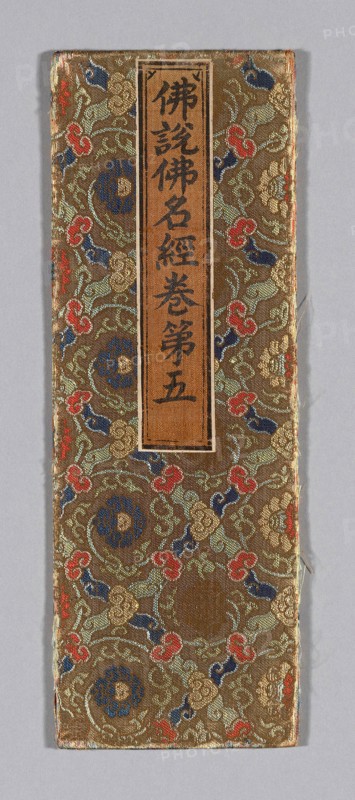 佛說佛名經卷第五